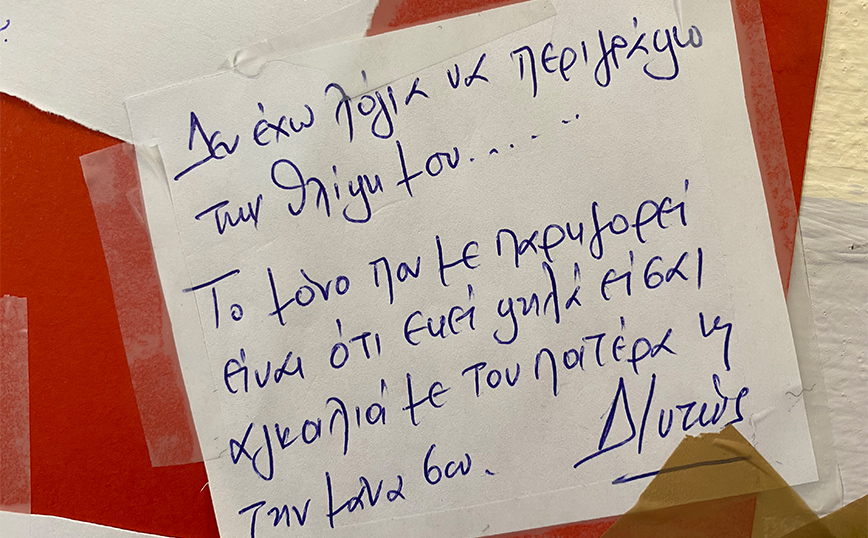 Δεν έχω λόγια να περιγράψω
την θλίψη μου......
Το μόνο που με παρηγορεί
είναι ότι εκεί ψηλά είσαι
αγκαλιά με τον πατέρα κ
την μάνα σου.
Δ/ντώς